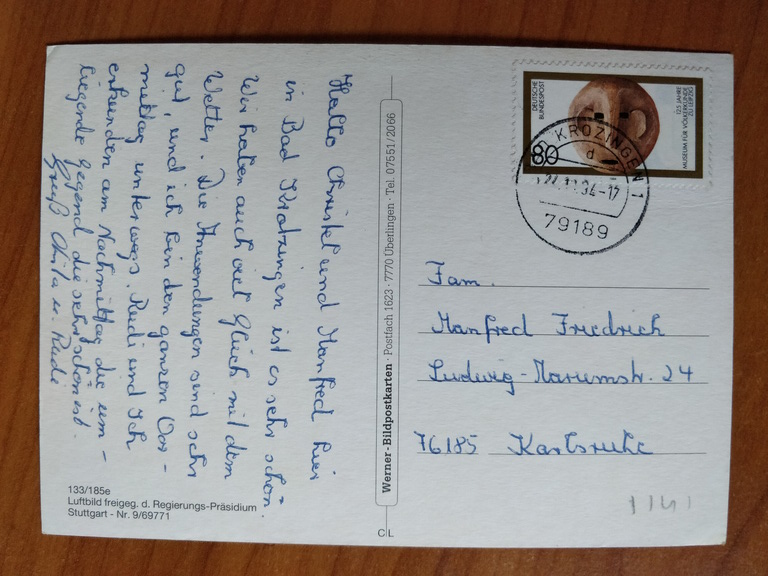 Hallo Christel und Manfred hier
in Bad Krotzingen ist es sehr schön.
Wir haben auch viel Glück mit dem
Wetter. Die Anwendungen sind sehr
gut, und ich bin den ganzen Vor-
mittag unterwegs. Rudi und Ich
erkunden am Nachmittag die um-
liegende Gegend die sehr schön ist.
Gruß u. Rudi
133/185e
Luftbild freigeg. d. Regierungs-Präsidium
Stuttgart - Nr. 9/69771
Werner-Bildpostkarten · Postfach 1623 · 7770 Überlingen · Tel. 07551/2066
C L
DEUTSCHE
BUNDESPOST
80
125 JAHRE
MUSEUM FÜR VÖLKERKUNDE
ZU LEIPZIG
KROZINGEN 1
d
.11.94-17
79189
Fam.
Manfred Friedrich
Ludwig-Marumstr. 24
76185 Karlsruhe